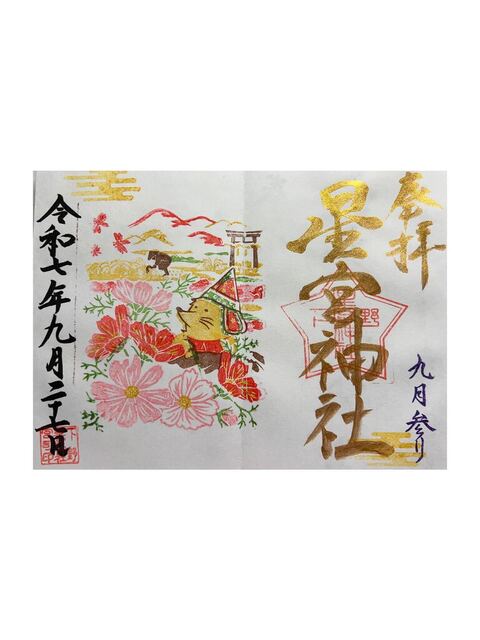 奉拝
星宮神社
九月参り
令和七年九月二十七日